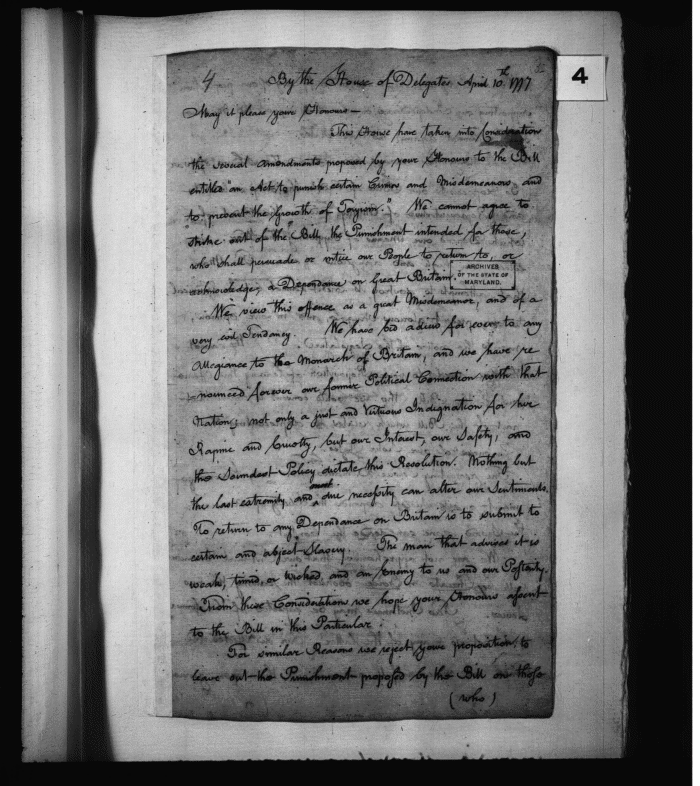 4
4 By the House of Delegates April 10th 1777
May it please your Honours—
This House have taken into Consideration
the several amendments proposed by your Honours to the Bill
entitled "an Act to punish certain Crimes and Misdemeanors and
to prevent the Growth of Toryism." We cannot agree to
strike out of the Bill the Punishment intended for those,
who shall persuade or entice our People to return to, or
acknowledge, a Dependance on Great Britain.
ARCHIVES
OF THE STATE OF
MARYLAND.
We view this offence as a great Misdemeanor, and of a
very evil Tendancy. We have bid adieu for ever to any
Allegiance to the Monarch of Britain, and we have re
nounced forever our former Political Connection with that
Nation; not only a just and Virtuous Indignation for her
Rapine and Cruelty, but our Interest, our Safety, and
the Soundest Policy dictate this Resolution. Nothing but
the last extremity and due necessity can alter our Sentiments.
To return to any Dependance on Britain is to submit to
certain and abject Slavery. The man that advises it is
weak, timid, or wicked, and an Enemy to us and our Posterity.
From these Considerations we hope your Honours assent
to the Bill in this Particular.
For similar Reasons we reject your proposition to
leave out the Punishment proposed by the Bill on those
(who)